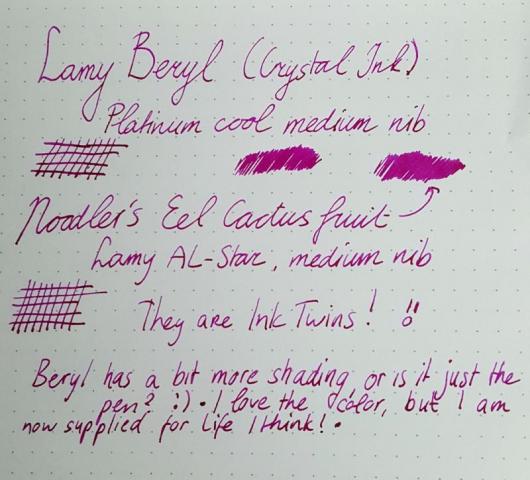 Lamy Beryl (Crystal Ink)
Platinum cool medium nib
Noodler's Eel Cactus fruit
Lamy AL-Star, medium nib
They are Ink Twins! !!
Beryl has a bit more shading, or is it just the
pen? :) . I love the color, but I am
now supplied for life I think! .